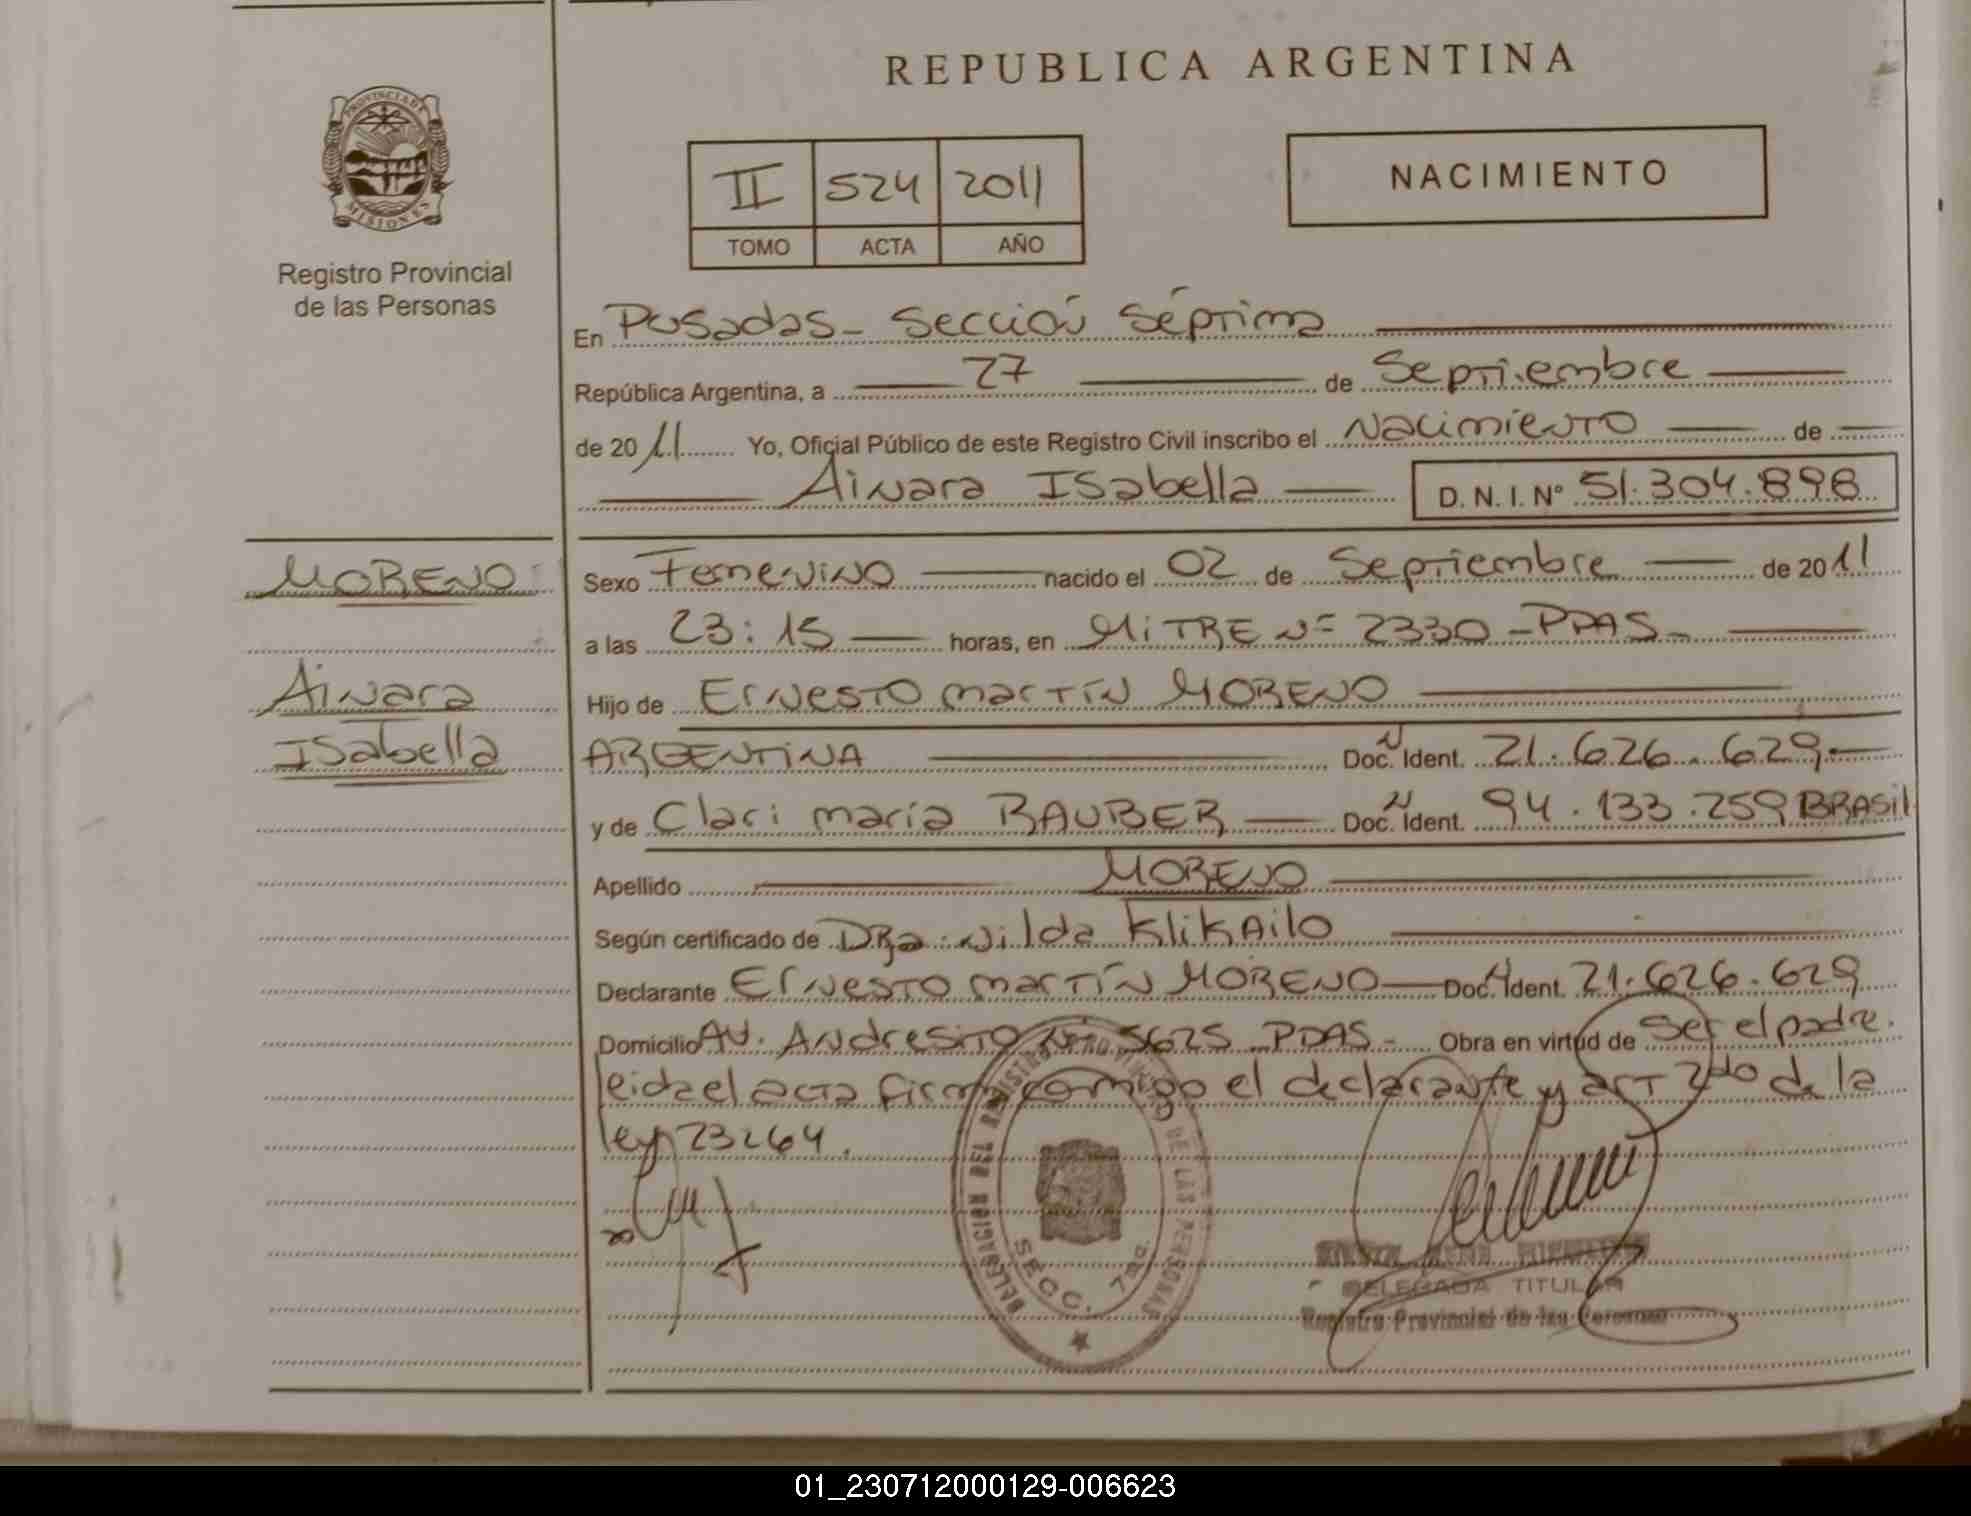 REPUBLICA ARGENTINA
PROVINCIA DE
MISIONES
Registro Provincial
de las Personas
II 524 2011
TOMO ACTA AÑO
NACIMIENTO
En Posadas - Sección Séptima
República Argentina, a 27 de Septiembre
de 2011 Yo, Oficial Público de este Registro Civil inscribo el Nacimiento de
Ainara Isabella D. N. I. Nº 51.304.898
MORENO
Ainara
Isabella
Sexo Femenino nacido el 02 de Septiembre de 2011
a las 23:15 horas, en MITRE Nº 2330 - PDAS -
Hijo de Ernesto Martín MORENO
ARGENTINA Doc. N Ident. 21.626.629.-
y de Clari María RAUBER Doc. N Ident. 94.133.259 BRASil
Apellido MORENO
Según certificado de DRa. Nilda KliKAilo
Declarante Ernesto Martín MORENO Doc. N Ident. 21.626.629
Domicilio AV. Andresito Nº 5625 - PDAS - Obra en virtud de Ser el padre.
leida el acta firma conmigo el declarante y art 2do de la
ley 23264.
DELEGACION DEL REGISTRO PROVINCIAL DE LAS PERSONAS
SECC. 7ma.
DELEGADA TITULAR
Registro Provincial de las Personas
01_230712000129-006623